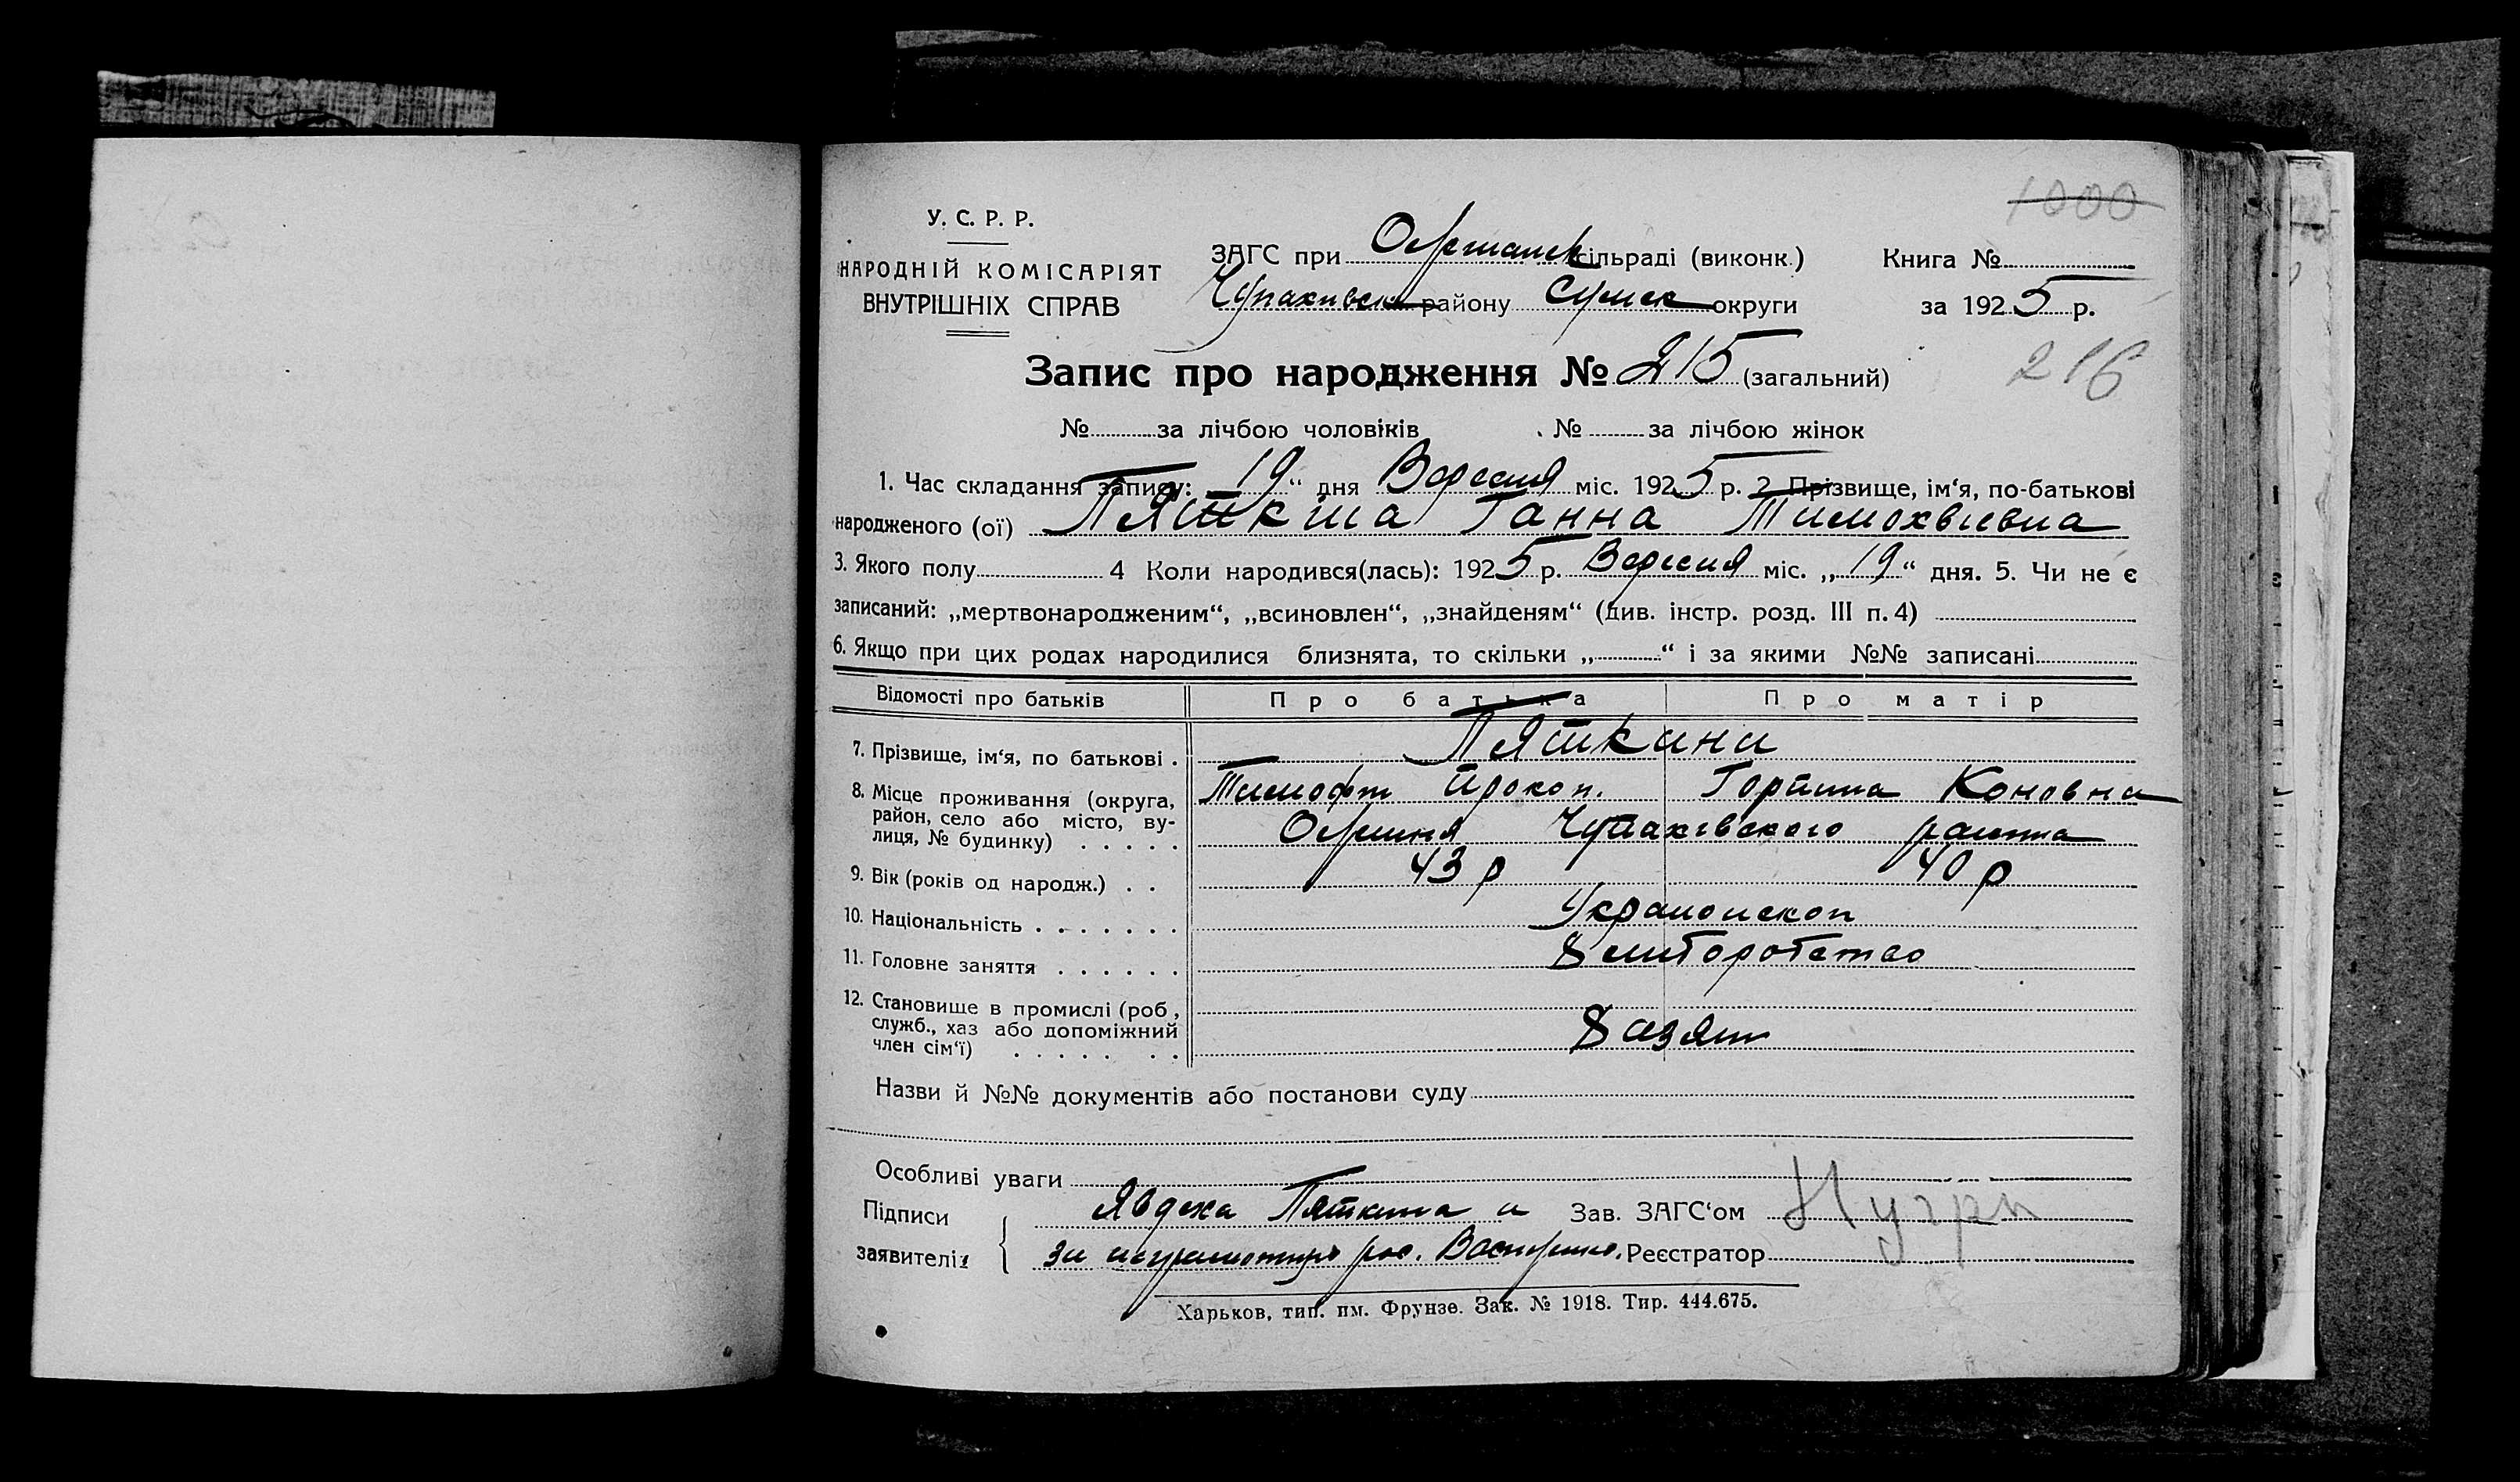 1000
У. С. Р. Р.
НАРОДНІЙ КОМІСАРІЯТ
ВНУТРІШНІХ СПРАВ
ЗАГС при сільраді (виконк.)
Чупахивск району Сумск округи
Книга №
за 1925 р.
Запис про народження № 215 (загальний)
216
№ за лічбою чоловіків № за лічбою жінок
1. Час складання запису: 19“ дня Вересня міс. 1925 р. 2 Прізвище, ім‘я, по-батькові
народженого (ої) Пяткина Ганна Тимохвіевна
3. Якого полу 4 Коли народився(лась): 1925 р. Вересня міс. „19“ дня. 5. Чи не є
записаний: „мертвонародженим“, „всиновлен“, „знайденям“ (див. інстр. розд. III п. 4)
6. Якщо при цих родах народилися близнята, то скільки „ “ і за якими №№ записані
Відомості про батьків Про батька Про матір
7. Прізвище, ім‘я, по батькові . Пяткини
Тимофт Прокоп. Горпина Коновна
8. Місце проживання (округа,
район, село або місто, ву-
лиця, № будинку) . . . . . Чупахівського
9. Вік (років од народж.) . . 43 р 40 р
10. Національність . . . . . . .
11. Головне заняття . . . . . .
12. Становище в промислі (роб,
служб., хаз або допоміжний
член сім‘ї) . . . . . . .
Назви й №№ документів або постанови суду
Особливі уваги
Підписи
заявителів
Явдоха Пяткина и
за
Зав. ЗАГС‘ом
Реєстратор
Харьков, тип. им. Фрунзе. Зак. № 1918. Тир. 444.675.